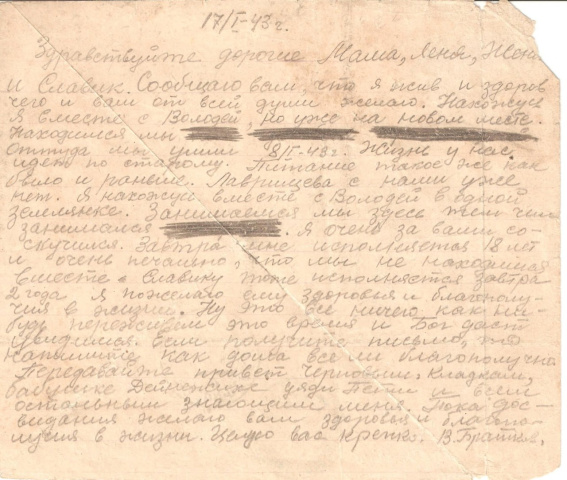 17/I-43 г.
Здравствуйте дорогие Мама, Леня, Женя
и Славик. Сообщаю вам, что я жив и здоров
чего и вам от всей души желаю. Нахожусь
Я вместе с Володей но уже на новом месте.
Находимся мы
оттуда мы ушли 8/I-43г. Жизнь у нас
идет по старому. Питание такое же как
было и раньше. Лаврищева с нами уже
нет. Я нахожусь вместе с Володей в одной
землянке. Занимаемся мы здесь тем чем
занимался . Я очень за вами со-
скучился. Завтра мне исполняется 18 лет
и очень печально, что мы не находимся
вместе. Славику тоже исполняется завтра
2 года Я пожелаю ему здоровья и благополу-
чия в жизни. Ну это всё ничего как ни-
будь переживем это время и Бог даст
увидимся. Если получите письмо, то
напишите как дома все ли благополучно
Передавайте привет Черновым, Кладкам,
бабушке дяди Пети и всем
остальным знающим меня. Пока дос-
видания желаю вам здоровья и благопо-
лучия в жизни. Целую вас крепко. В.